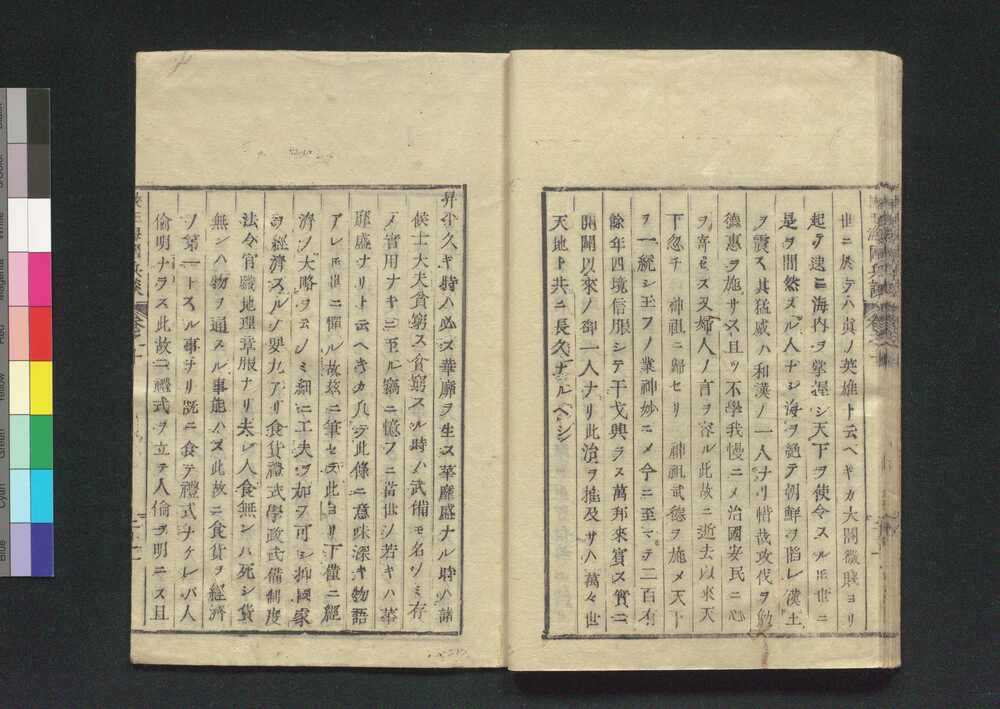 世ニ於テハ眞ノ英雄ト云ベキカ大閤微賤ヨリ
起テ遂ニ海内ヲ掌握シ天下ヲ使令スル𪜈世ニ
是ヲ間然スル人ナシ海ヲ絶テ朝鮮ヲ陷レ漢土
ヲ震ス其猛威ハ和漢ノ一人ナリ惜哉攻伐ヲ勉
德惠ヲ施サス且ツ不學我慢ニメ治國安民ニ心
ヲ寄セス又婦人ノ言ヲ容ル此故ニ逝去以來天
下忽チ 神祖ニ歸セリ 神祖武德ヲ施メ天下
ヲ一統シ玉フノ業神妙ニメ今ニ至マテ二百有
餘年四境信服シテ干戈興ラス萬邦來賓ス實ニ
開闢以來ノ御一人ナリ此治ヲ推及サハ萬々世
天地ト共ニ長久ナルベシ
昇平久キ時ハ必ス華靡ヲ生ス華靡盛ナル時ハ諸
候士大夫貧窮ス貧窮スル時ハ武備モ名ノミ存
メ實用ナキニ至ル竊ニ憶フニ當世ノ若キハ華
靡盛ナリト云ヘキカ凡テ此條ニ意味深キ物語
アレ𪜈世ニ憚ル故玆ニ筆セス此ヨリ下僅ニ經
濟ノ大略ヲ云ノミ細ニ工夫ヲ加フ可シ抑國家
ヲ經濟スルノ要九アリ食貨禮式學政武備制度
法令官職地理章服ナリ夫レ人食無シハ死シ貨
無シハ物ヲ通スル事能ハス此故ニ食貨ヲ經濟
ノ第一トスル事ナリ既ニ食テ禮式ナケレバ人
倫明ナラス此故ニ禮式ヲ立テ人倫ヲ明ニス且